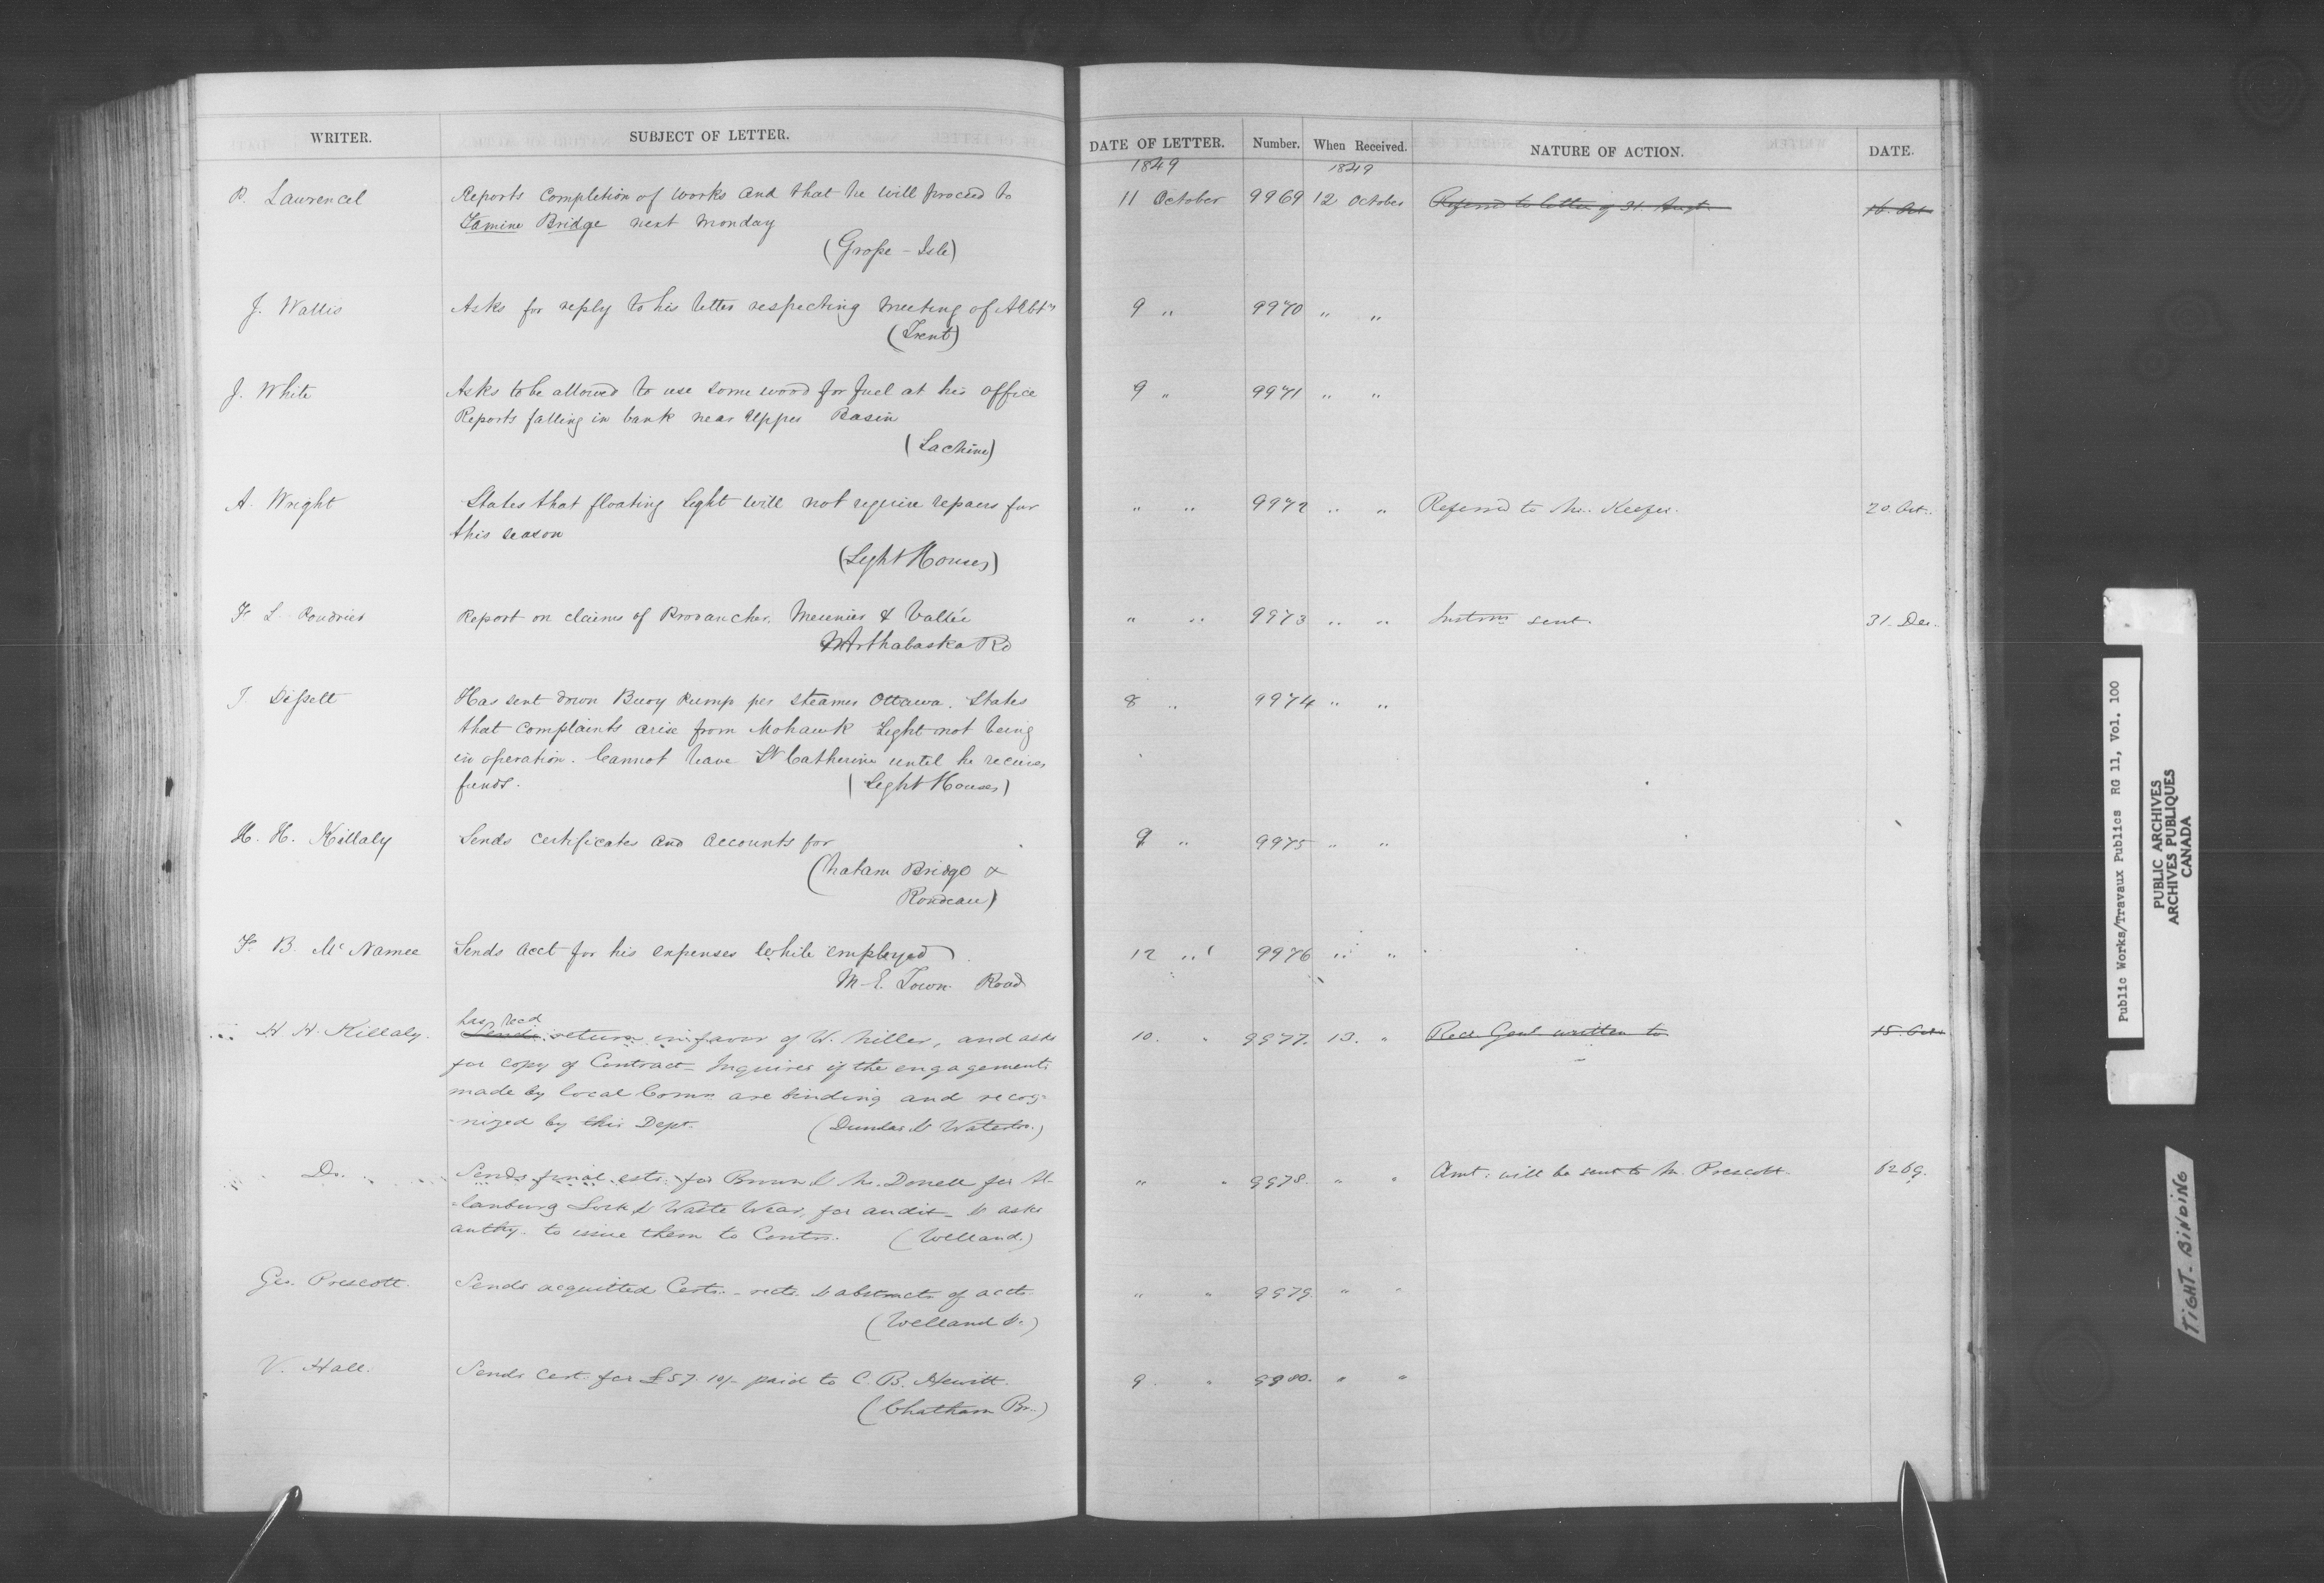 WRITER. SUBJECT OF LETTER. DATE OF LETTER. Number. When Received. NATURE OF ACTION. DATE.
1849 1849
P. Laurencel Reports completion of works and that he will proceed to 11 October 9969 12 October Referred to letter of 31. Augt. 16. Oct
Famine Bridge next Monday
(Grosse-Isle)
J. Wallis Asks for reply to his letter respecting meeting of 9 " 9970 " "
(Trent)
J. White Asks to be allowed to use some wood for fuel at his office 9 " 9971 " "
Reports falling in bank near Upper Basin
(Lachine)
A. Wright States that floating light will not require repairs for " " 9972 " " Referred to Mr. Keefer. 20 Oct.
this season
(Light Houses)
F. L. Report on claims of Provancher, Meunier & Vallée " " 9973 " " Instrns sent. 31. Dec.
Arthabaska Rd
J. Dissett Has sent down Buoy Pump per steamer Ottawa. States 8 " 9974 " "
that complaints arise from Mohawk Light not being
in operation. Cannot leave St Catherine until he receives
funds. (Light Houses)
H. H. Killaly Sends certificates and accounts for 9 " 9975 " "
(Chatam Bridge &
Rondeau)
F. B. McNamee Sends acct for his expenses while employed 12 " 9976 " "
M-E. Town. Road
has recd
H. H. Killaly. Sends return in favor of W. Miller, and asks 10. " 9977. 13. " Recr Genl written to 15. Oct.
for copy of Contract - Inquires if the engagements
made by local Comrs are binding and recog-
-nized by this Dept. (Dundas & Waterloo.)
Do. Sends final ests. for Brown & McDonell for Al- " " 9978. " " Amt. will be sent to Mr. Prescott. 6269.
-lanburg Lock & Waste Wear, for audit - & asks
authy. to issue them to Contrs. (Welland.)
Geo. Prescott. Sends acquitted Certs. - rects. & abstracts of accts " " 9979. " "
(Welland &.)
V. Hall. Sends Cert. for £57. 10/- paid to C. B. Hewitt. 9. " 9980. " "
(Chatham Br.)
Public Works/Travaux Publics RG 11, Vol. 100
PUBLIC ARCHIVES
ARCHIVES PUBLIQUES
CANADA
TIGHT-BINDING